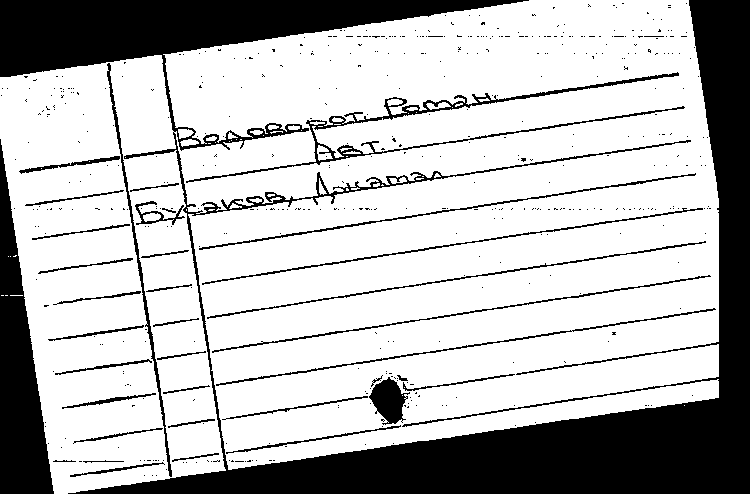 Водоворот. Роман.
Авт.:
Бусаков, Джамал